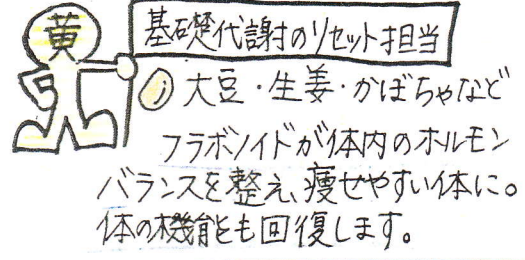 黄
基礎代謝のリセット担当
大豆・生姜・かぼちゃなど
フラボノイドが体内のホルモン
バランスを整え、痩せやすい体に。
体の機能も回復します。